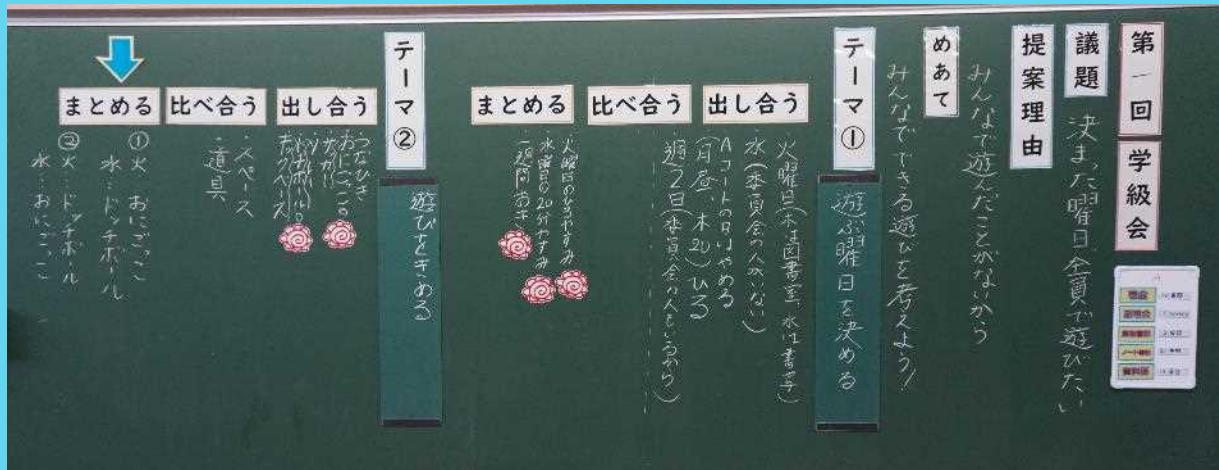 第一回 学級会
議題 決まった曜日全員で遊びたい
提案理由
みんなで遊んだことがないから
めあて
みんなでできる遊びを考えよう!
テーマ① 遊ぶ曜日を決める
出し合う
・火曜日(木は図書室、水は書写)
・水(委員会の人がいない)
Aコートの日はやめる
(月昼 木20)ひる
週2日(委員会の人もいるから)
比べ合う
まとめる
・火曜日のひるやすみ
・水曜日の20分やすみ
・一週間おき
テーマ② 遊びをきめる
出し合う
つなひき
おにごっこ
比べ合う
・スペース
・道具
まとめる
①火 おにごっこ
水…ドッチボール
②火…ドッチボール
水…おにごっこ